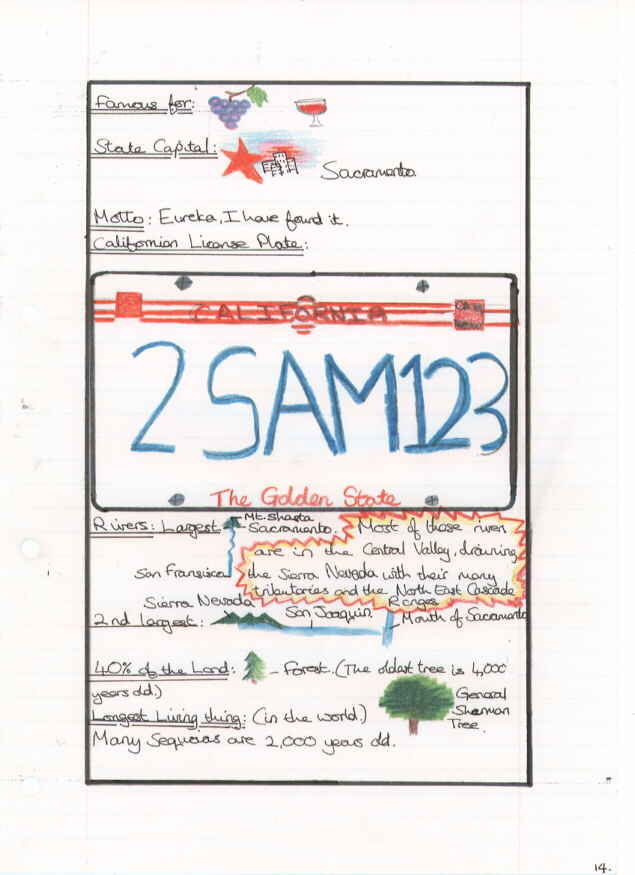 Famous for:
State Capital:
Sacramento
Motto: Eureka, I have found it.
Californian License Plate:
CALIFORNIA
2SAM123
The Golden State
Rivers: Largest
Mt. Shasta
Sacramento.
San Fransisco
Most of these rivers
are in the Central Valley, draining
the Sierra Nevada with their many
tributaries and the North East Cascade
Ranges
Sierra Nevada
2nd largest:
San Joaquin
Mouth of Sacramento
40% of the Land: - Forest. (The oldest tree is 4,000
years old.)
Longest Living thing: (in the world.)
General
Sherman
Tree.
Many Sequoias are 2,000 years old.
14.